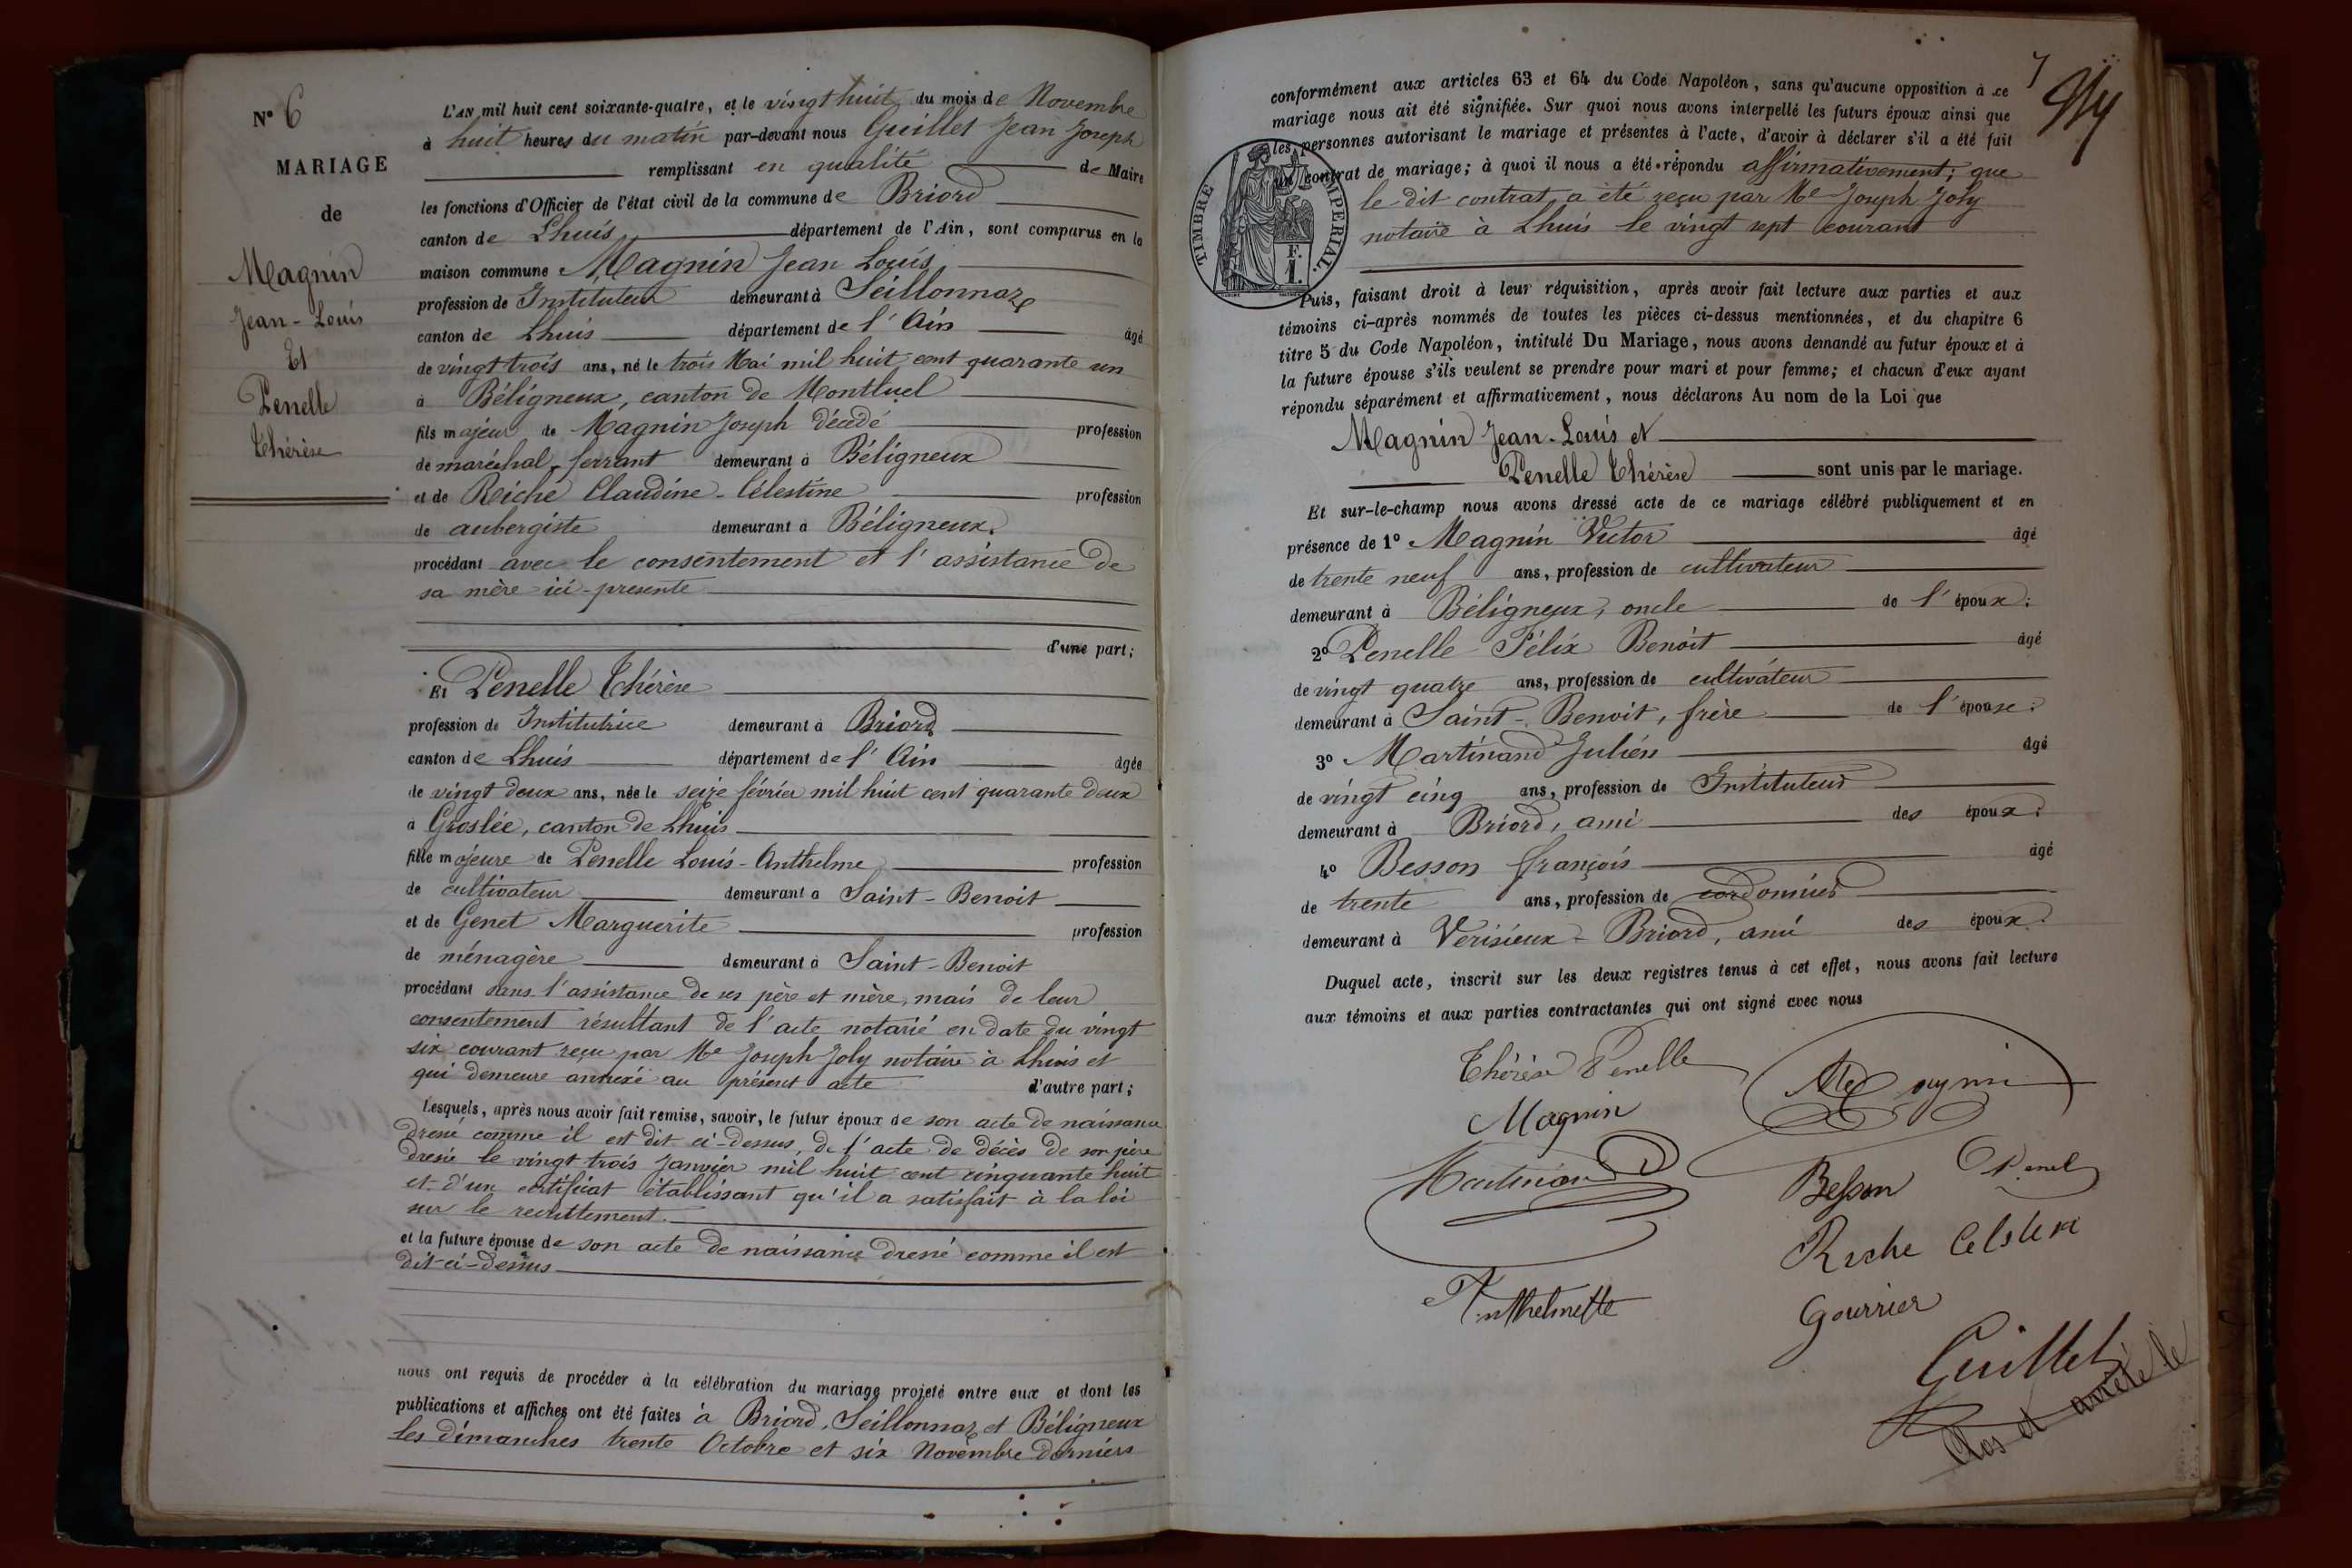 N° 6
MARIAGE
de
Magnin
Jean-Louis
Et
Penelle
Thérèse
L'AN mil huit cent soixante-quatre, et le vingt huit du mois de Novembre
à huit heures du matin par-devant nous Guillet Jean Joseph
remplissant en qualité de Maire
les fonctions d'Officier de l'état civil de la commune de Briord
canton de Lhuis département de l'Ain, sont comparus en la
maison commune Magnin Jean Louis
profession de Instituteur demeurant à Seillonnaz
canton de Lhuis département de l'Ain âgé
de vingt trois ans, né le trois Mai mil huit cent quarante un
à Béligneux, canton de Montluel
fils majeur de Magnin Joseph décédé profession
de maréchal-ferrant demeurant à Béligneux
et de Riche Claudine-Célestine profession
de aubergiste demeurant à Béligneux.
procédant avec le consentement et l'assistance de
sa mère ici-presente
d'une part;
Et Penelle Thérèse
profession de Institutrice demeurant à Briord
canton de Lhuis département de l'Ain âgée
de vingt deux ans, née le seize février mil huit cent quarante deux
à Groslée, canton de Lhuis
fille majeure de Penelle Louis-Anthelme profession
de cultivateur demeurant à Saint-Benoit
et de Genet Marguerite profession
de ménagère demeurant à Saint-Benoit
procédant sans l'assistance de ses père et mère, mais de leur
consentement résultant de l'acte notarié en date du vingt
six courant reçu par Me Joseph Joly notaire à Lhuis et
qui demeure annexé au présent acte d'autre part;
Lesquels, après nous avoir fait remise, savoir, le futur époux de son acte de naissance
dressé comme il est dit ci-dessus, de l'acte de décès de son père
dressé le vingt trois Janvier mil huit cent cinquante huit
et d'un certificat établissant qu'il a satisfait à la loi
sur le recrutement.
et la future épouse de son acte de naissance dressé comme il est
dit-ci-dessus
nous ont requis de procéder à la célébration du mariage projeté entre eux et dont les
publications et affiches ont été faites à Briord, Seillonnaz et Béligneux
les dimanches trente Octobre et six Novembre derniers
7
conformément aux articles 63 et 64 du Code Napoléon, sans qu'aucune opposition à ce
mariage nous ait été signifiée. Sur quoi nous avons interpellé les futurs époux ainsi que
les personnes autorisant le mariage et présentes à l'acte, d'avoir à déclarer s'il a été fait
un contrat de mariage; à quoi il nous a été répondu affirmativement; que
le dit contrat a été reçu par Me Joseph Joly
notaire à Lhuis le vingt sept courant
TIMBRE IMPERIAL.
F.
1.
Puis, faisant droit à leur réquisition, après avoir fait lecture aux parties et aux
témoins ci-après nommés de toutes les pièces ci-dessus mentionnées, et du chapitre 6
titre 5 du Code Napoléon, intitulé Du Mariage, nous avons demandé au futur époux et à
la future épouse s'ils veulent se prendre pour mari et pour femme; et chacun d'eux ayant
répondu séparément et affirmativement, nous déclarons Au nom de la Loi que
Magnin Jean-Louis et
Penelle Thérèse sont unis par le mariage.
Et sur-le-champ nous avons dressé acte de ce mariage célébré publiquement et en
présence de 1° Magnin Victor âgé
de trente neuf ans, profession de cultivateur
demeurant à Béligneux, oncle de l'époux;
2° Penelle Félix Benoit âgé
de vingt quatre ans, profession de cultivateur
demeurant à Saint-Benoit, frère de l'épouse;
3° Martinand Julien âgé
de vingt cinq ans, profession de Instituteur
demeurant à Briord, ami des époux;
4° Besson françois âgé
de trente ans, profession de cordonnier
demeurant à Verisieux-Briord, ami des époux.
Duquel acte, inscrit sur les deux registres tenus à cet effet, nous avons fait lecture
aux témoins et aux parties contractantes qui ont signé avec nous
Thérèse Penelle
Magnin
Magnin
Martinand
Besson Penel
Riche Celstin
Gourrier
Guillet
Clos et arrêté le